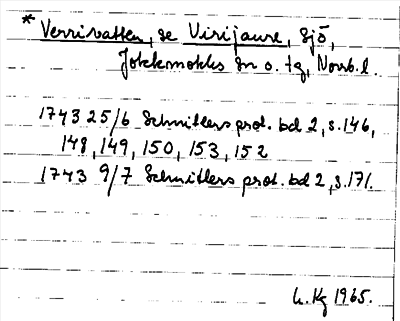 * Verrivatten, se Virijaure, sjö,
Jokkmokks sn o. tg, Norrb. l.
1743 25/6 Schnitlers prot. bd 2, s. 146,
148, 149, 150, 153, 152
1743 9/7 Schnitlers prot. bd 2, s. 171.
1965.